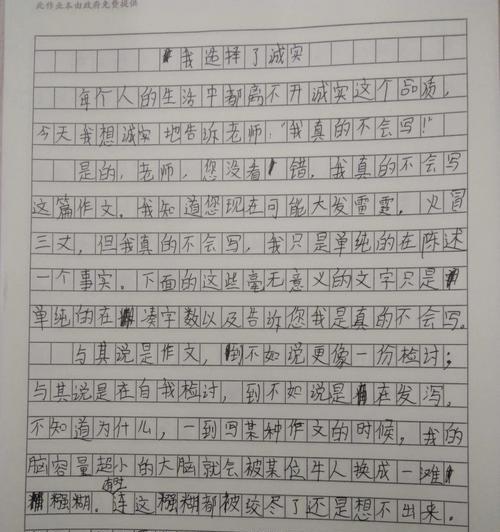 此作业本由政府免费提供
我选择了诚实
每个人的生活中都离不开诚实这个品质，
今天我想诚实地告诉老师："我真的不会写！"
是的，老师，您没看错，我真的不会写
这篇作文。我知道您现在可能大发雷霆，火冒
三丈，但我真的不会写，我只是单纯的在陈述
一个事实。下面的这些毫无意义的文字只是
单纯的在凑字数以及告诉您我是真的不会写。
与其说是作文，倒不如说更像一份检讨；
与其说是在自我检讨，到不如说是在发泻。
不知道为什么，一到写某种作文的时候，我的
脑容量超小的大脑就会被某位牛人换成一滩
糨糊。连这糨糊都被绞尽了还是想不出来。